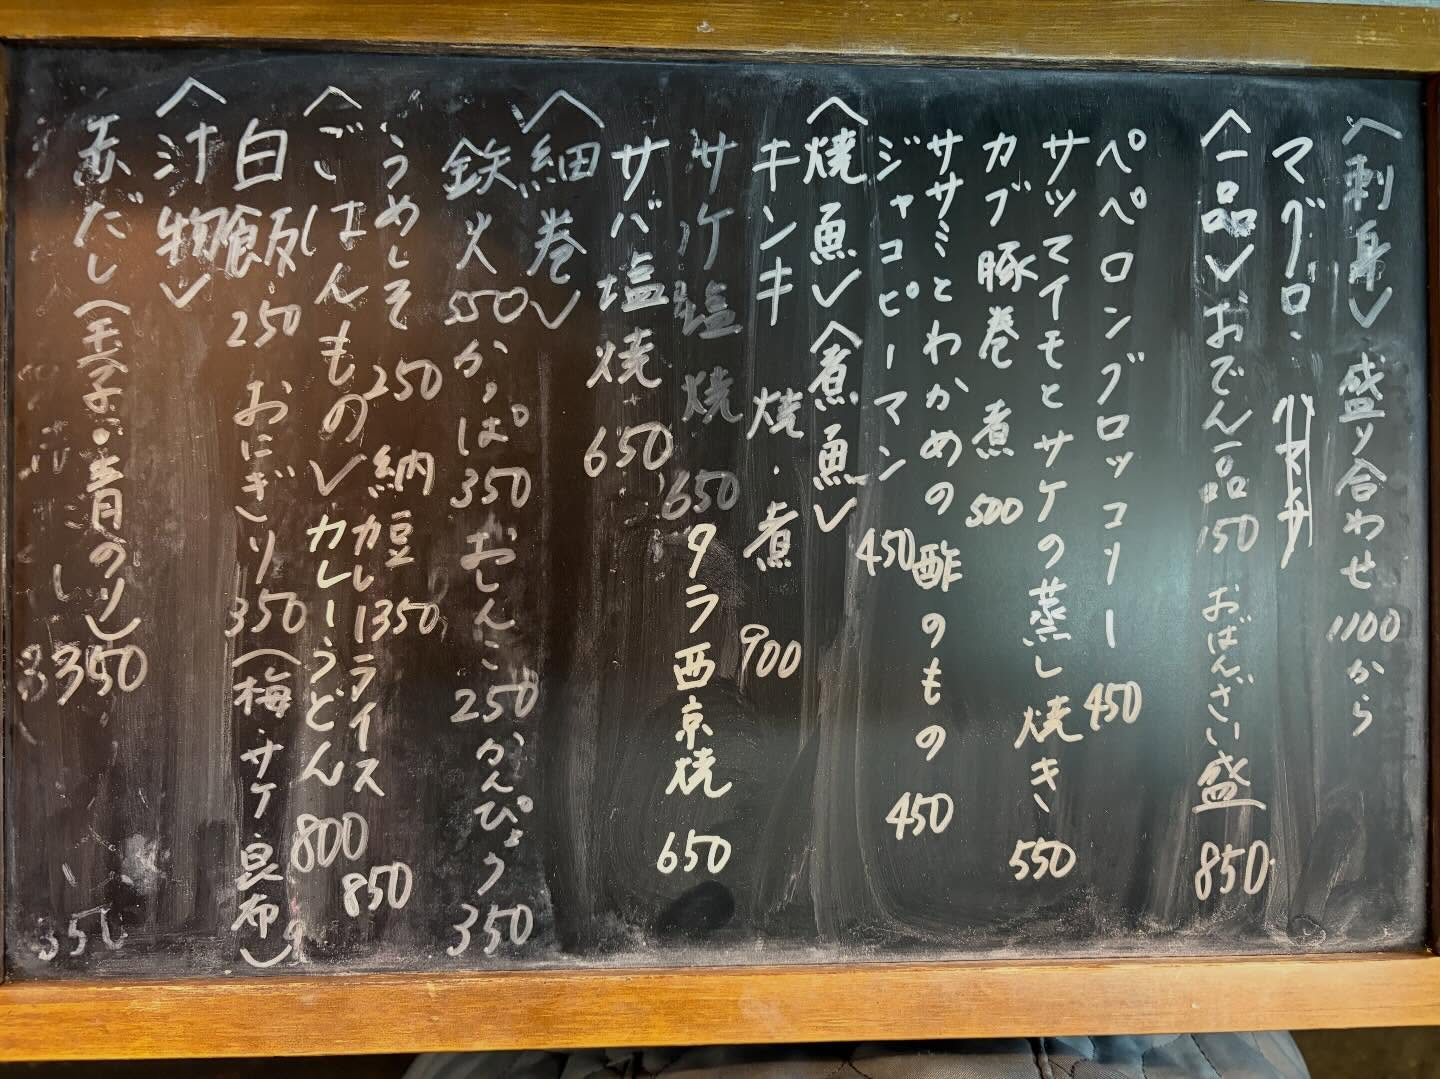 〈刺身〉盛り合わせ 1100から
マグロ、ハマチ
〈一品〉おでん一品 150 おばんざい盛 850
ペペロンブロッコリー 450
サツマイモとサケの蒸し焼き 550
カブ豚巻煮 500
ササミとわかめの酢のもの 450
ジャコピーマン 450
〈焼魚〉〈煮魚〉
キンキ 焼・煮 900
サケ塩焼 650 タラ西京焼 650
サバ塩焼 650
〈細巻〉
鉄火 550 かっぱ 350 おしんこ 250 かんぴょう 350
うめしそ 250 納豆 350
〈ごはんもの〉カレーライス 850
カレーうどん 800
白飯 250 おにぎり 350(梅・サケ・昆布)
〈汁物〉
赤だし(玉子・青のり) 350
350